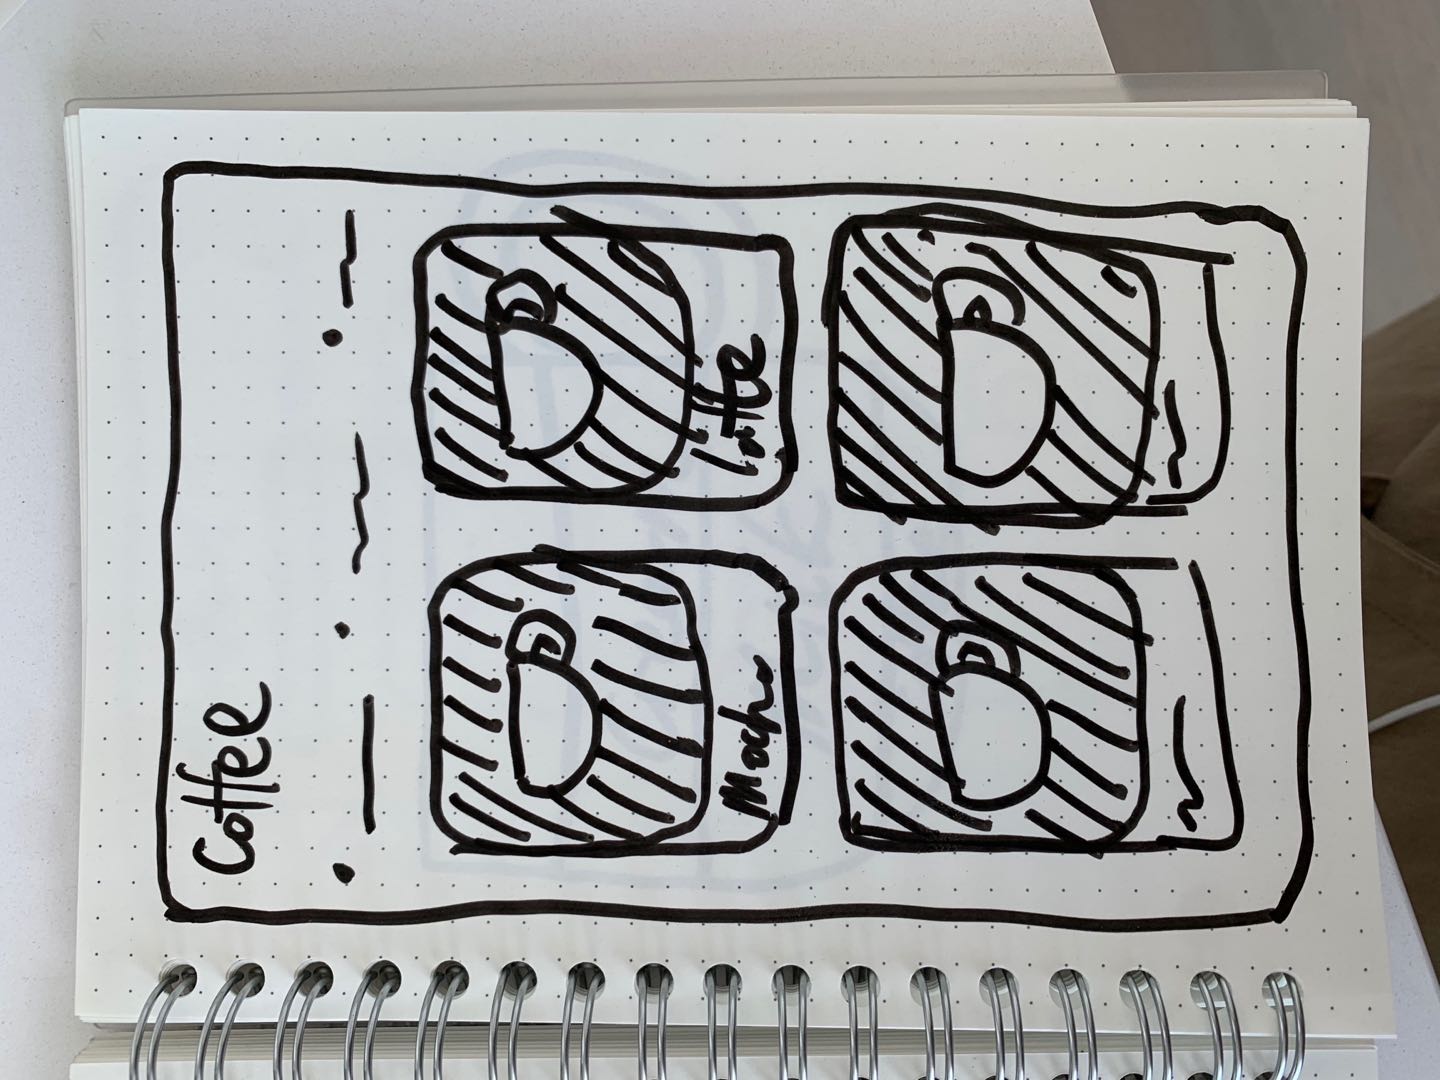 Coffee
Mocha
latte